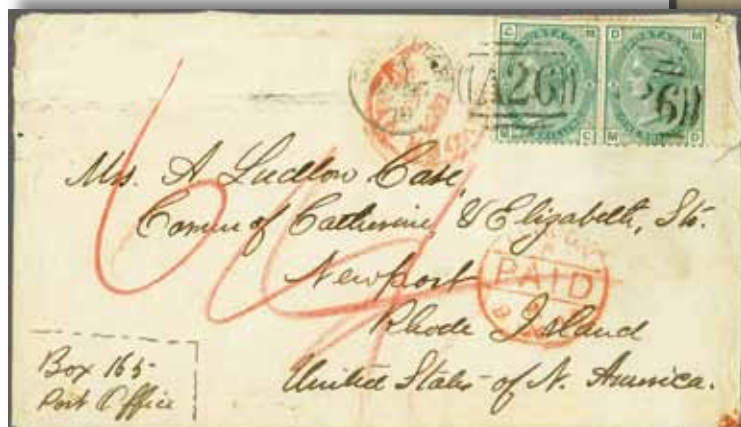 A26
6
C M D M
M C M D
Mrs. A Ludlow Case
Corner of Catherine & Elizabeth, Sts.
Newport
PAID
Rhode Island
United States of N. America.
Box 165
Post Office